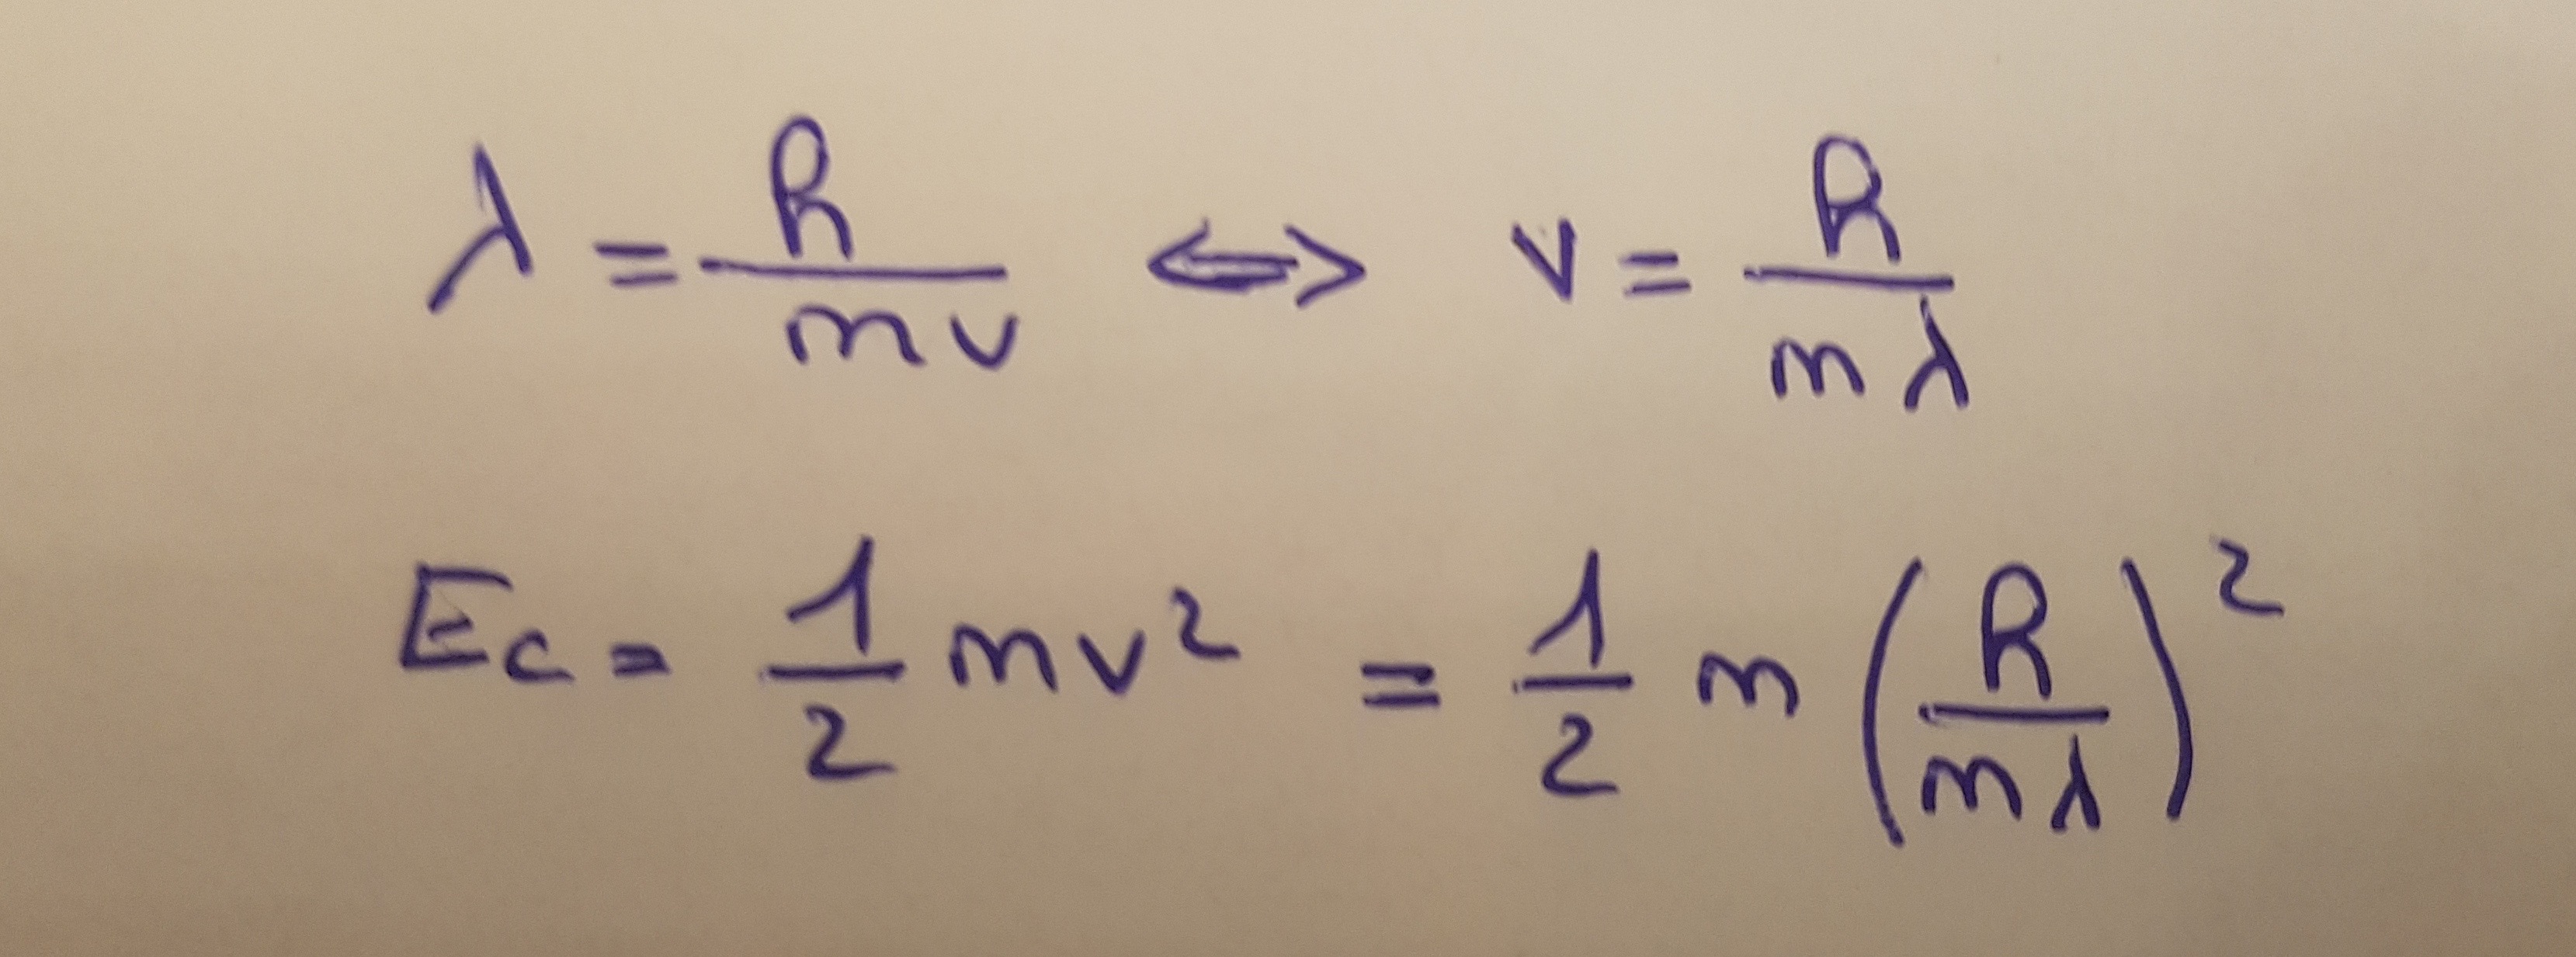 λ = h/(mv) ⇔ v = h/(mλ)
Ec = 1/2 mv² = 1/2 m (h/(mλ))²